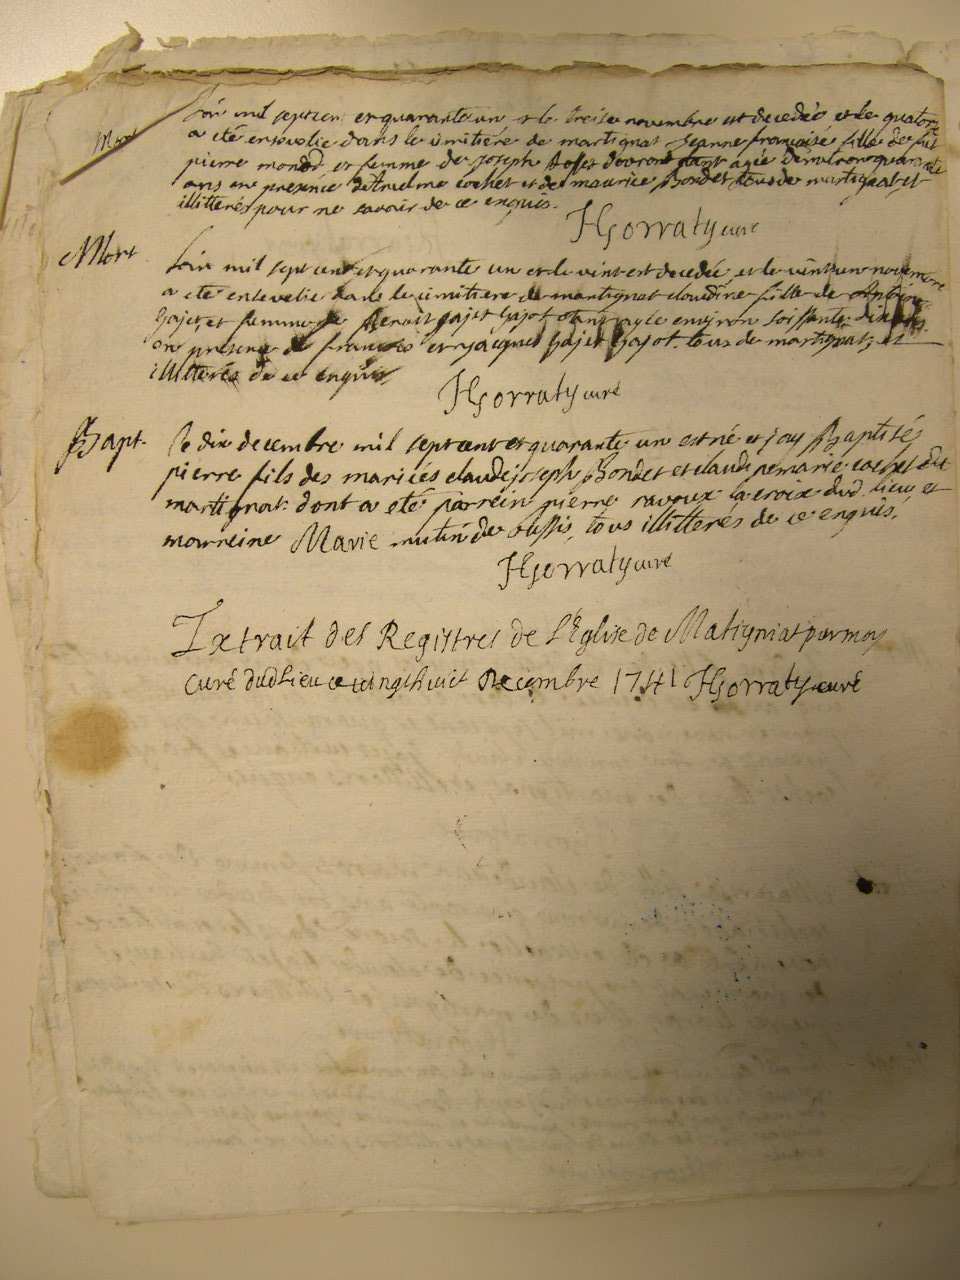 Mort
L'an mil sept cen et quarante un et le treise novembre est decedée et le quatorze
a eté ensevelie dans le cimitiere de martignat Jeanne françoise fille de fut
pierre monod et femme de joseph agée d'environ quarante
ans en presence d'Anthelme cochet et de maurice Bondet tous de martignat et
illitterés pour ne savoir de ce enquis.
HGorraty curé
Mort
L'an mil sept cent et quarante un et le vint est decedée et le vint un novembre
a eté ensevelie dans le cimitiere de martignat claudine fille de Antoine
Gajet et femme de Benoit Gajet Gajot agée environ soissante dix ans
en presence de françois et jacques Gajet Gajot tous de martignat et
illitterés de ce enquis
HGorraty curé
Bapt.
Le dix decembre mil sept cent et quarante un est né et j'ay Baptisé
pierre fils des mariés claude joseph Bondet et claude pemarie cochet de
martignat dont a eté parrein pierre ravoux la croix dud. lieu et
marreine Marie mutin de tous illitterés de ce enquis.
HGorraty curé
Extrait des Registres de L'Eglise de Matigniat par moy
curé dud Lieu ce vingt huict Decembre 1741 HGorraty curé